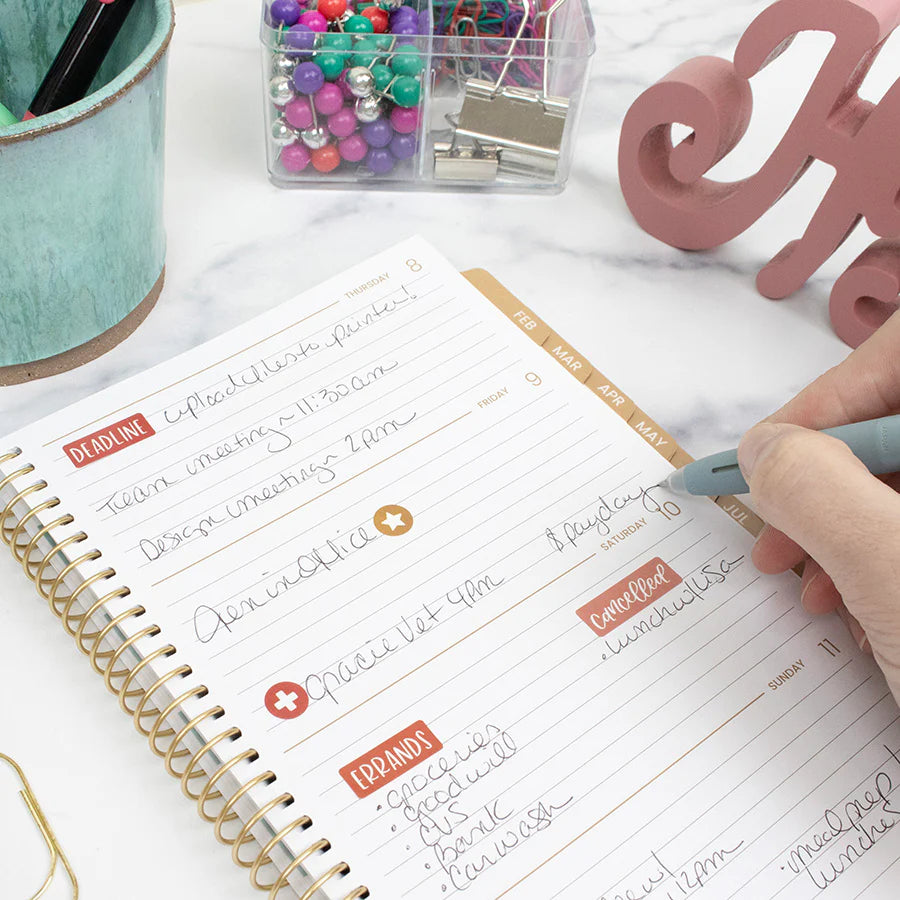 THURSDAY 8
DEADLINE upload files to printer!
Team meeting ~ 11:30am
Design meeting ~ 2am
FRIDAY 9
Gen in Office
$ payday
Gracie Vet 4pm
SATURDAY 10
cancelled
• lunch w/ Lisa
ERRANDS
• groceries
• goodwill
• CVS
• bank
• Car wash
SUNDAY 11
12pm
• meal prep
lunches
FEB
MAR
APR
MAY
JUL